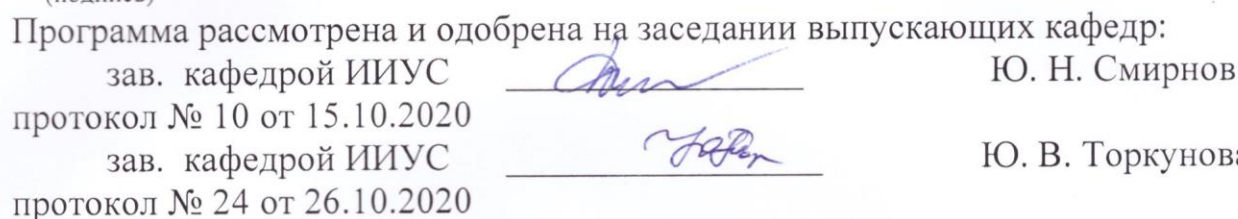 (подпись)
Программа рассмотрена и одобрена на заседании выпускающих кафедр:
зав. кафедрой ИИУС Ю. Н. Смирнов
протокол № 10 от 15.10.2020
зав. кафедрой ИИУС Ю. В. Торкунова
протокол № 24 от 26.10.2020